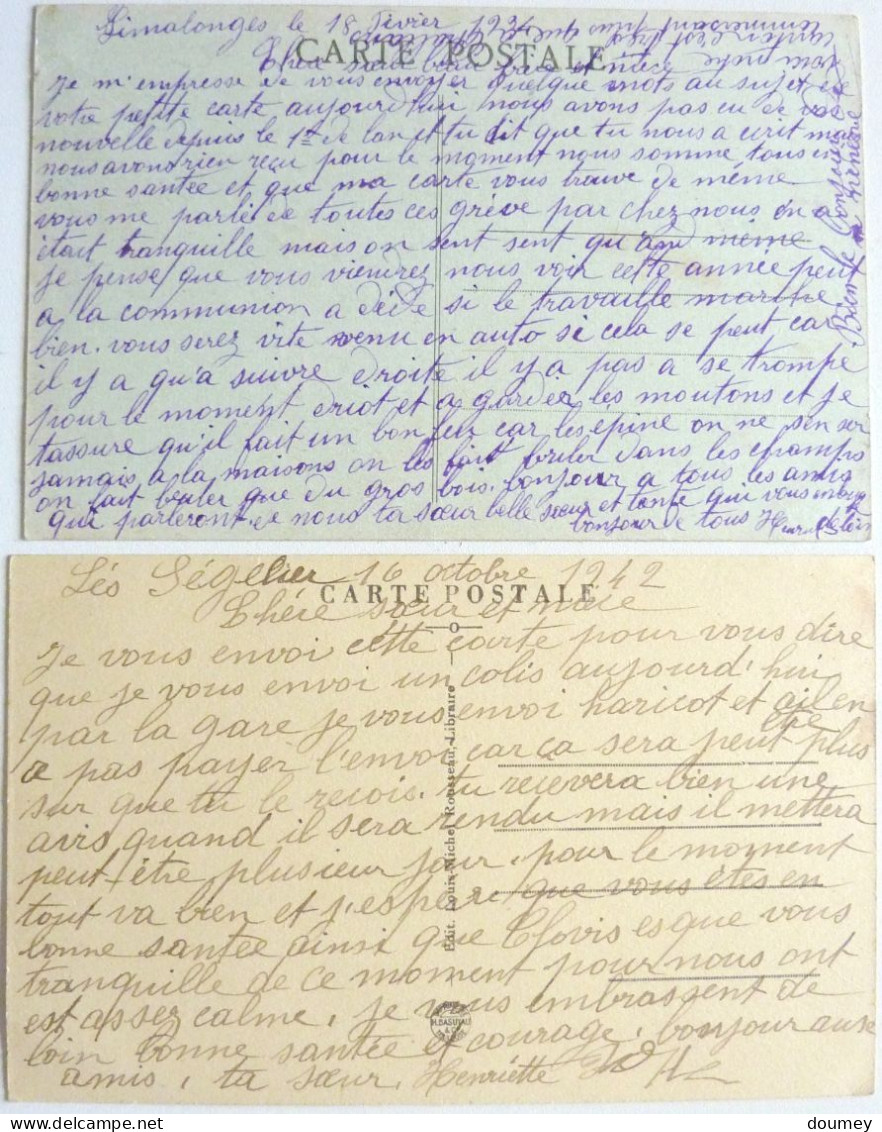 Limalonges le 18 février 1934
CARTE POSTALE
Chère sœur beau frère et nièce
Je m'empresse de vous envoyer quelque mots au sujet de
votre petite carte aujourd'hui nous avons pas eu de vos
nouvelle depuis le 1er de lan et tu dit que tu nous a écrit mais
nous avons rien reçu pour le moment nous somme tous en
bonne santée et que ma carte vous trouve de même
vous me parlé de toutes ces grève par chez nous on a
était tranquille mais on sent sent qu'and même
je pense que vous viendrez nous voir cette année peut
a la communion a dédé si le travaille marche
bien. vous serez vite venu en auto si cela se peut car
il y a qu'a suivre droite il y a pas a se trompe
pour le moment driot et a garder les moutons et je
tassure qu'il fait un bon feu car les épine on ne s'en ser
jamais a la maisons on les fait bruler dans les champs
on fait bruler que du gros bois. bonjour a tous les amis
qui parleront de nous ta sœur belle sœur et tante qui vous
bonjour de tous
de loin
Bien le bonjour
Lés Ségelier 16 octobre 1942
CARTE POSTALE
Chére sœur et niéce
Je vous envoi cette carte pour vous dire
que je vous envoi un colis aujourd'hui
par la gare je vous envoi haricot et ail en
a pas payer l'envoi car ça sera peut être plus
sur que tu le reçois. tu recevera bien une
avis quand il sera rendu mais il mettera
peut-être plusieur jour. pour le moment
tout va bien et j'espére que vous êtes en
bonne santée ainsi que Clovis esque vous
tranquille de ce moment pour nous ont
est assez calme, je vous embrassent de
loin bonne santée et courage, bonjour au
amis, ta sœur. Henriette
Edit. Louis-Michel Rousseau, Libraire
doumey